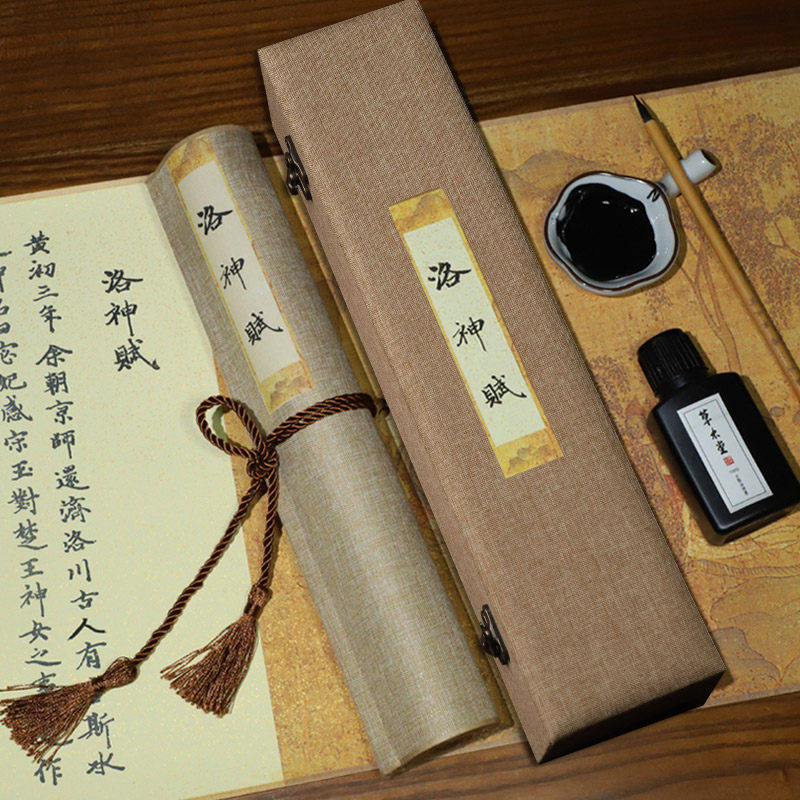 洛神賦
黃初三年余朝京師還濟洛川古人有斯水
神名曰宓妃感宋玉對楚王神女之事作
洛神賦
洛神賦
草木堂